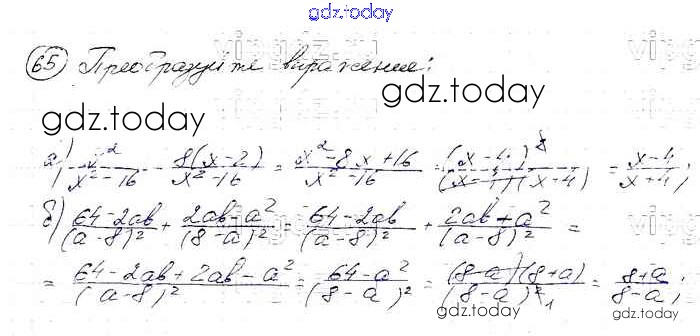 gdz.today
65 Преобразуйте выражение:
gdz.today
gdz.today
а) x²/(x²-16) - 8(x-2)/(x²-16) = (x²-8x+16)/(x²-16) = (x-4)²/((x-4)(x+4)) = (x-4)/(x+4);
б) (64-2ab)/(a-8)² + (2ab-a²)/(8-a)² = (64-2ab)/(a-8)² + (2ab+a²)/(a-8)² =
= (64-2ab+2ab-a²)/(a-8)² = (64-a²)/(8-a)² = (8-a)(8+a)/(8-a)² 1 = (8+a)/(8-a);
gdz.today